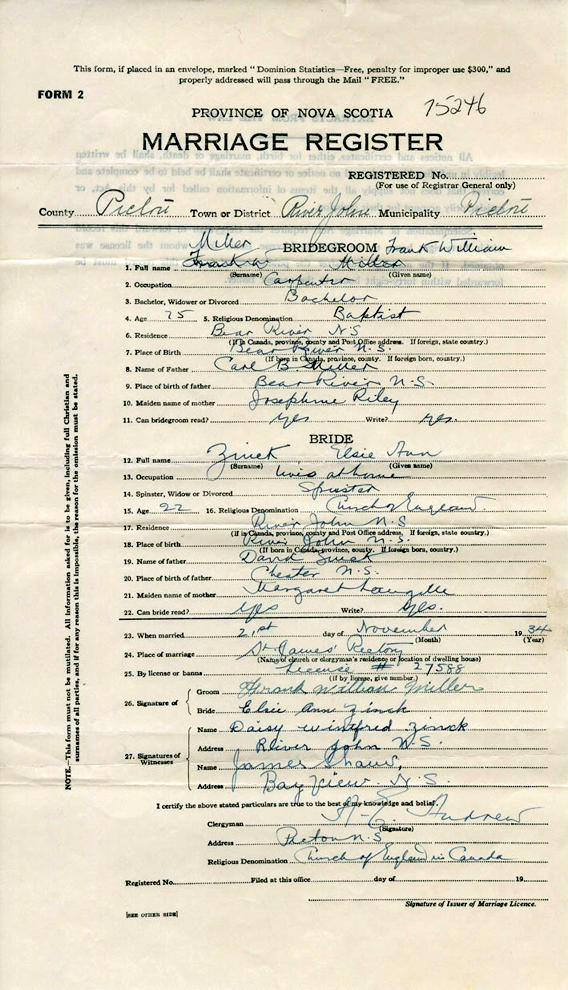 This form, if placed in an envelope, marked "Dominion Statistics—Free, penalty for improper use $300," and
properly addressed will pass through the Mail "FREE."
FORM 2
PROVINCE OF NOVA SCOTIA 75246
MARRIAGE REGISTER
REGISTERED No.
(For use of Registrar General only)
County Pictou Town or District River John Municipality Pictou
Miller BRIDEGROOM Frank William
1. Full name Frank W Miller
(Surname) (Given name)
2. Occupation Carpenter
3. Bachelor, Widower or Divorced Bachelor
4. Age 25 5. Religious Denomination Baptist
6. Residence Bear River NS
(If in Canada, province, county and Post Office address. If foreign, state country.)
7. Place of Birth Bear River N.S.
(If born in Canada, province, county. If foreign born, country.)
8. Name of Father Carl B Miller
9. Place of birth of father Bear River N.S.
10. Maiden name of mother Josephine Riley
11. Can bridegroom read? yes Write? yes.
BRIDE
12. Full name Zinck Elsie Ann
(Surname) (Given name)
13. Occupation lives at home
14. Spinster, Widow or Divorced Spinster
15. Age 22 16. Religious Denomination Church of England
17. Residence River John N.S
(If in Canada, province, county and Post Office address. If foreign, state country.)
18. Place of birth River John N.S.
(If born in Canada, province, county. If foreign born, country.)
19. Name of father David Zinck
20. Place of birth of father Chester N.S.
21. Maiden name of mother Margaret
22. Can bride read? yes Write? yes.
23. When married 21st day of November 1934
(Month) (Year)
24. Place of marriage St James' Rectory
(Name of church or clergyman's residence or location of dwelling house)
25. By license or banns License # 27588
(If by license, give number.)
26. Signature of Groom Frank William Miller
Bride Elsie Ann Zinck
27. Signatures of Witnesses Name Daisy Winifred Zinck
Address River John N.S.
Name James Shaw,
Address Bay View. N.S.
I certify the above stated particulars are true to the best of my knowledge and belief.
Clergyman Andrew
(Signature)
Address Pictou N.S
Religious Denomination Church of England in Canada
Registered No. Filed at this office day of 19
Signature of Issuer of Marriage Licence.
[SEE OTHER SIDE]
NOTE.—This form must not be mutilated. All information asked for is to be given, including full Christian and
surnames of all parties, and if for any reason this is impossible, the reason for the omission must be stated.